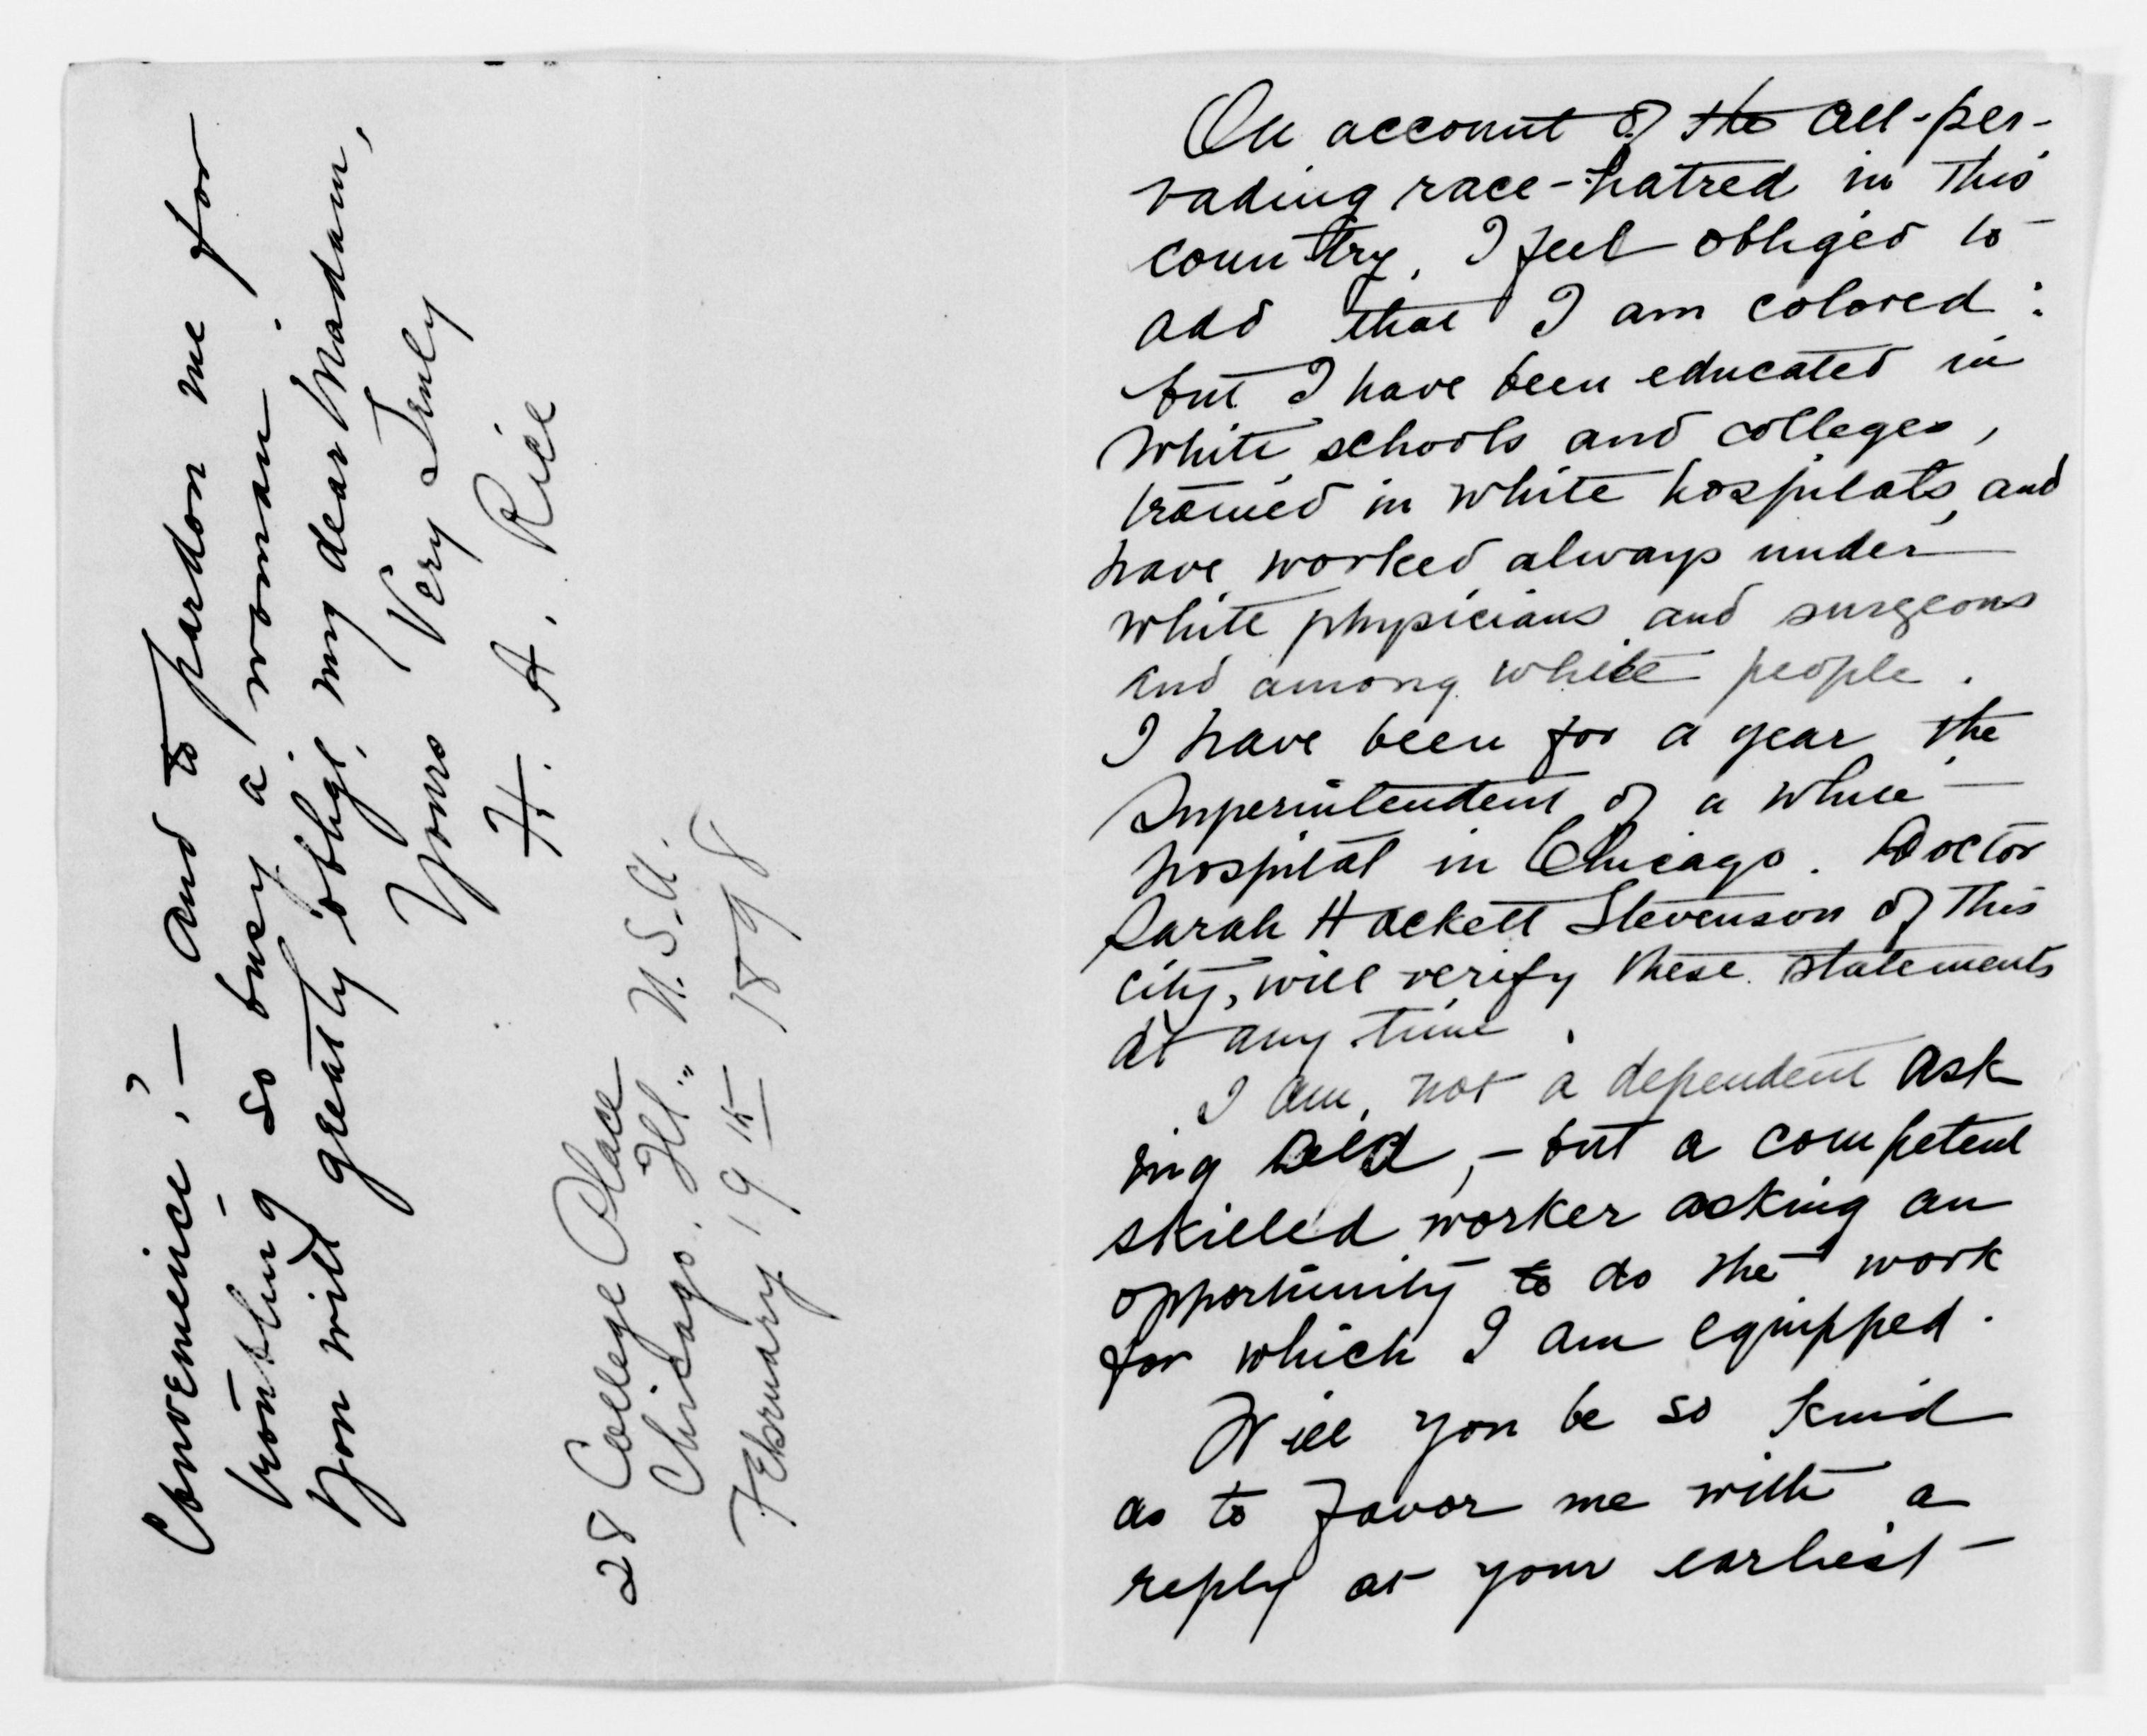 On account of the all-per-
vading race-hatred in this
country, I feel obliged to
add that I am colored:
but I have been educated in
white schools and colleges,
trained in white hospitals, and
have worked always under
white physicians and surgeons
and among white people.
I have been for a year the
Superintendent of a white
hospital in Chicago. Doctor
Sarah Hackett Stevenson of this
city, will verify these statements
at any time.
I am not a dependent ask
ing, - but a competent
skilled worker asking an
opportunity to do the work
for which I am equipped.
Will you be so kind
as to favor me with a
reply at your earliest
Convenience? - And to pardon me for
troubling so busy a woman.
You will greatly oblige, my dear Madam,
Yours Very Truly
H. A. Rice
28 College Place
Chicago. Ill., U.S.A.
February 19th 1898